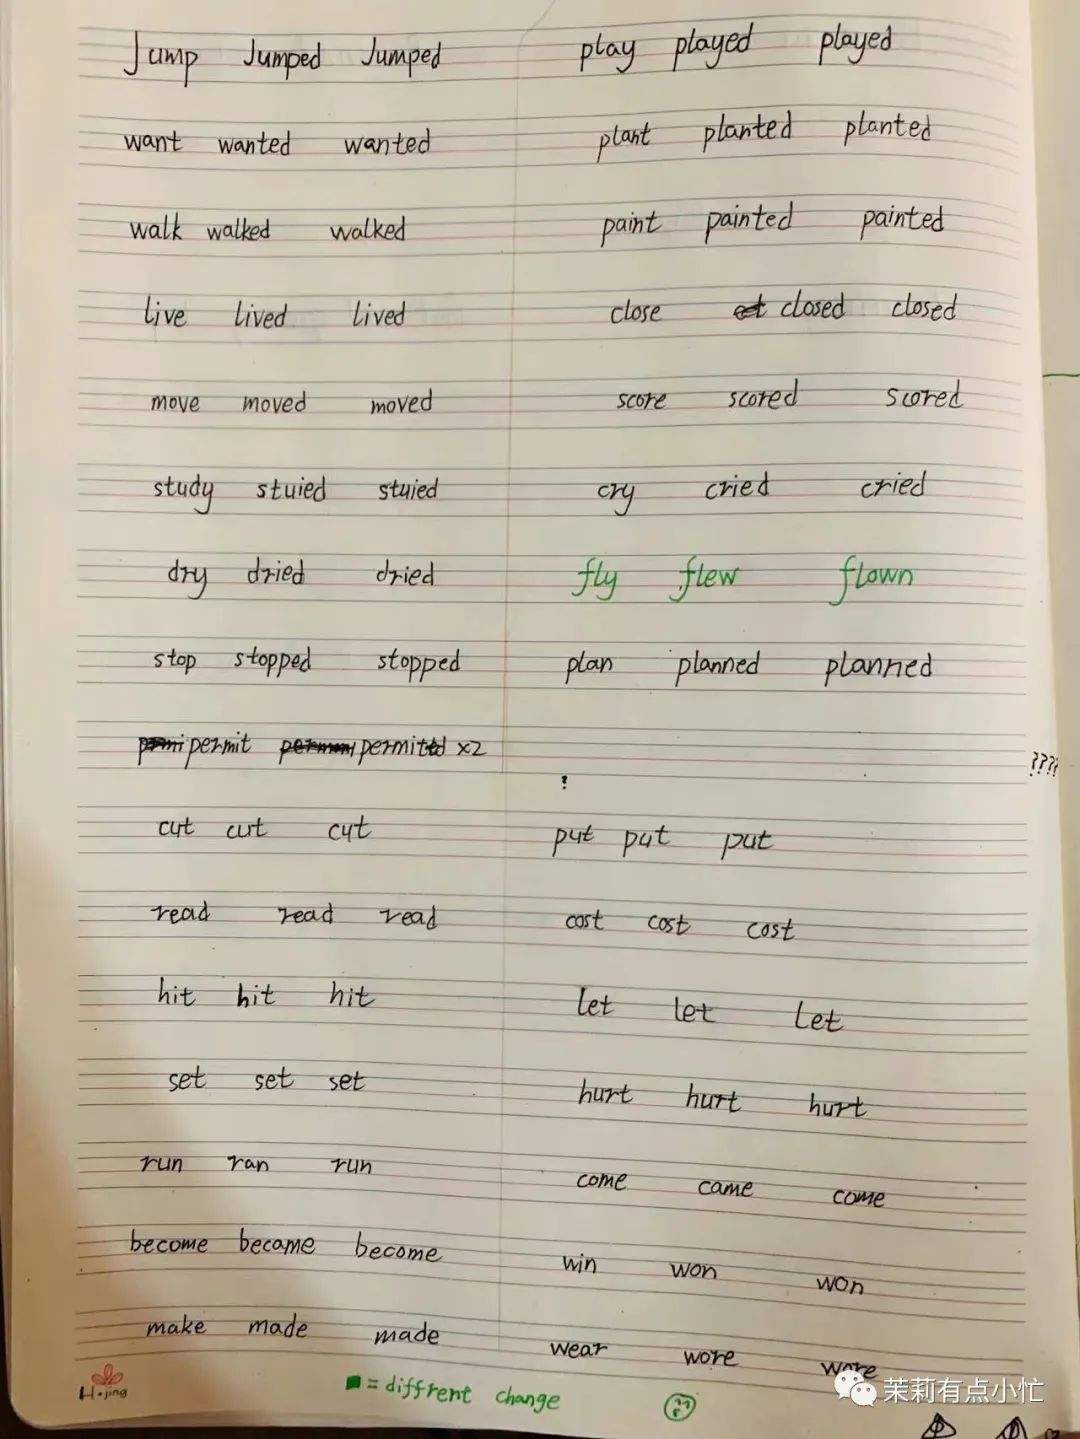 Jump Jumped Jumped play played played
want wanted wanted plant planted planted
walk walked walked paint painted painted
live lived lived close closed closed
move moved moved score scored scored
study stuied stuied cry cried cried
dry dried dried fly flew flown
stop stopped stopped plan planned planned
permit permitted x2
????
!
cut cut cut put put put
read read read cost cost cost
hit hit hit let let let
set set set hurt hurt hurt
run ran run come came come
become became become win won won
make made made wear wore wore
H.jing = diffrent change
茉莉有点小忙